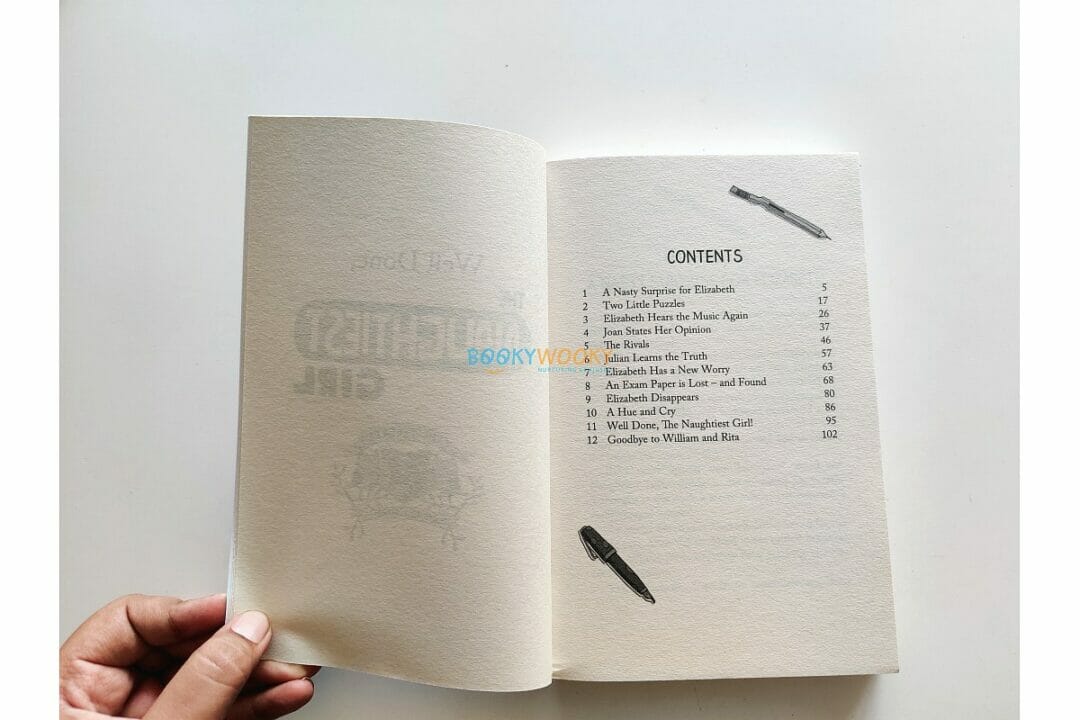 Well Done,
THE
NAUGHTIEST
GIRL
BOOKYWOOKY
CONTENTS
1 A Nasty Surprise for Elizabeth 5
2 Two Little Puzzles 17
3 Elizabeth Hears the Music Again 26
4 Joan States Her Opinion 37
5 The Rivals 46
6 Julian Learns the Truth 57
7 Elizabeth Has a New Worry 63
8 An Exam Paper is Lost – and Found 68
9 Elizabeth Disappears 80
10 A Hue and Cry 86
11 Well Done, The Naughtiest Girl! 95
12 Goodbye to William and Rita 102